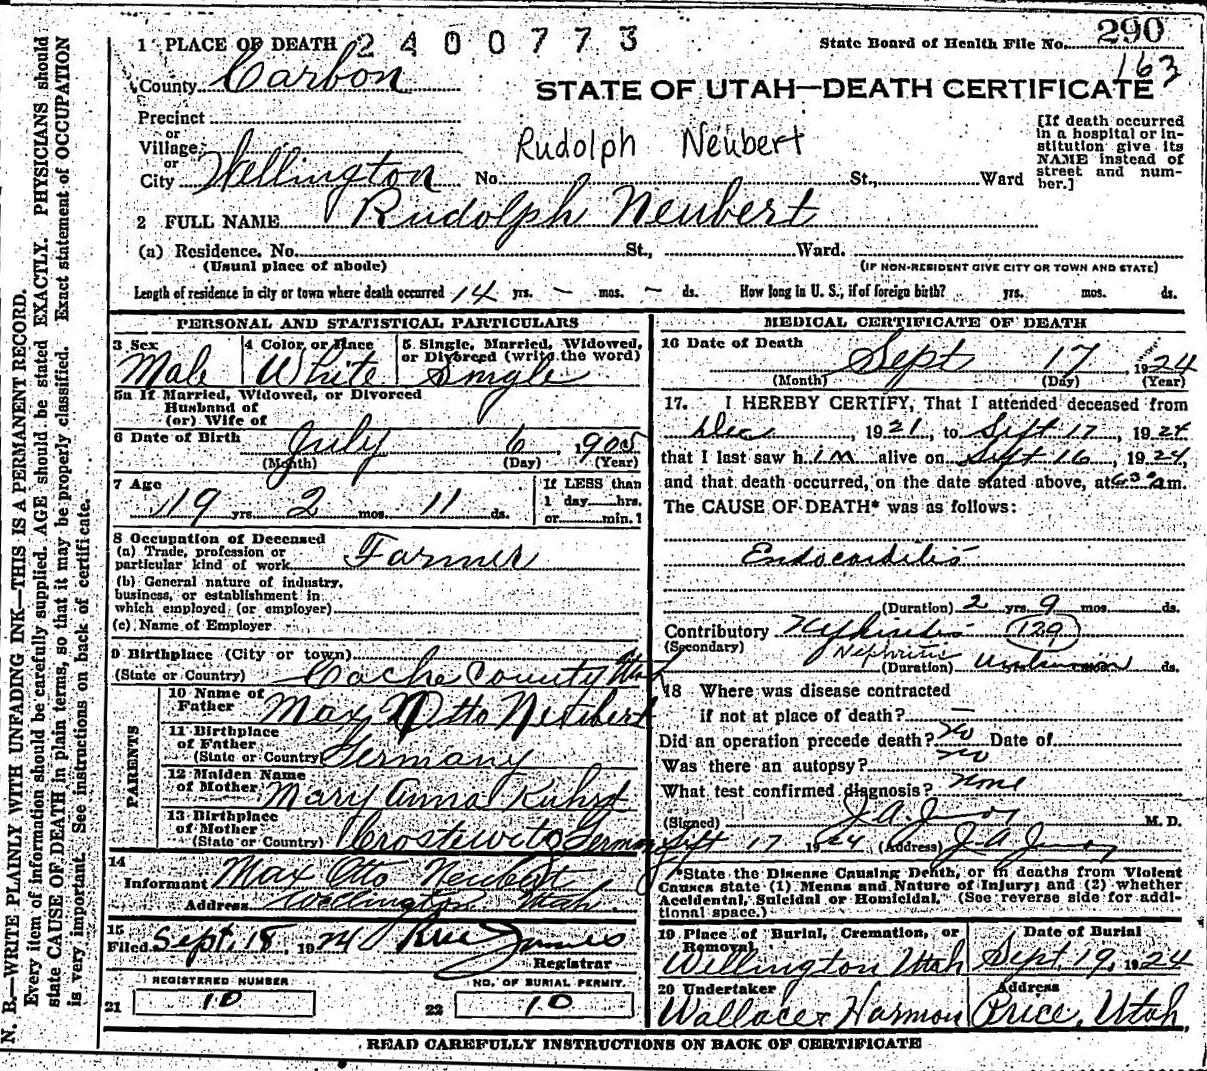 N. B.—WRITE PLAINLY WITH UNFADING INK—THIS IS A PERMANENT RECORD.
Every item of information should be carefully supplied. AGE should be stated EXACTLY. PHYSICIANS should
state CAUSE OF DEATH in plain terms, so that it may be properly classified. Exact statement of OCCUPATION
is very important. See instructions on back of certificate.
1 PLACE OF DEATH 2400773
State Board of Health File No. 290
163
County Carbon
STATE OF UTAH—DEATH CERTIFICATE
Precinct
or
Village
or
City Wellington No. St., Ward
Rudolph Neubert
[If death occurred
in a hospital or in-
stitution give its
NAME instead of
street and num-
ber.]
2 FULL NAME Rudolph Neubert
(a) Residence. No. St., Ward.
(Usual place of abode) (IF NON-RESIDENT GIVE CITY OR TOWN AND STATE)
Length of residence in city or town where death occurred 14 yrs. – mos. – ds. How long in U. S., if of foreign birth? yrs. mos. ds.
PERSONAL AND STATISTICAL PARTICULARS
3 Sex Male
4 Color or Race White
5 Single, Married, Widowed,
or Divorced (write the word)
Single
5a If Married, Widowed, or Divorced
Husband of
(or) Wife of
6 Date of Birth July 6, 1905
(Month) (Day) (Year)
7 Age
19 yrs. 2 mos. 11 ds.
If LESS than
1 day hrs.
or min.?
8 Occupation of Deceased
(a) Trade, profession or
particular kind of work Farmer
(b) General nature of industry,
business, or establishment in
which employed (or employer)
(c) Name of Employer
9 Birthplace (City or town)
(State or Country) Cache County Utah
PARENTS
10 Name of
Father Max Otto Neubert
11 Birthplace
of Father
(State or Country) Germany
12 Maiden Name
of Mother Mary Anna
13 Birthplace
of Mother
(State or Country) Germany
14
Informant Max Otto Neubert
Address Wellington Utah
15
Filed Sept. 18, 1924
Registrar
REGISTERED NUMBER
21 10
NO. OF BURIAL PERMIT.
22 10
MEDICAL CERTIFICATE OF DEATH
16 Date of Death
Sept 17, 1924
(Month) (Day) (Year)
17. I HEREBY CERTIFY, That I attended deceased from
Dec, 1921, to Sept 17, 1924
that I last saw him alive on Sept 16, 1924,
and that death occurred, on the date stated above, at 6 30 a m.
The CAUSE OF DEATH* was as follows:
Endocarditis
(Duration) 2 yrs. 9 mos. ds.
Contributory Nephritis 129
(Secondary) Nephritis
(Duration) Unknown ds.
18 Where was disease contracted
if not at place of death? –
Did an operation precede death? No Date of
Was there an autopsy? no
What test confirmed diagnosis? none
(Signed) J. A. M. D.
Sept 17 1924 (Address) J. A.
*State the Disease Causing Death, or in deaths from Violent
Causes state (1) Means and Nature of Injury; and (2) whether
Accidental, Suicidal or Homicidal. (See reverse side for addi-
tional space.)
19 Place of Burial, Cremation, or
Removal
Wellington Utah
Date of Burial
Sept. 19, 1924
20 Undertaker
Wallace & Harmon
Address
Price, Utah.
READ CAREFULLY INSTRUCTIONS ON BACK OF CERTIFICATE